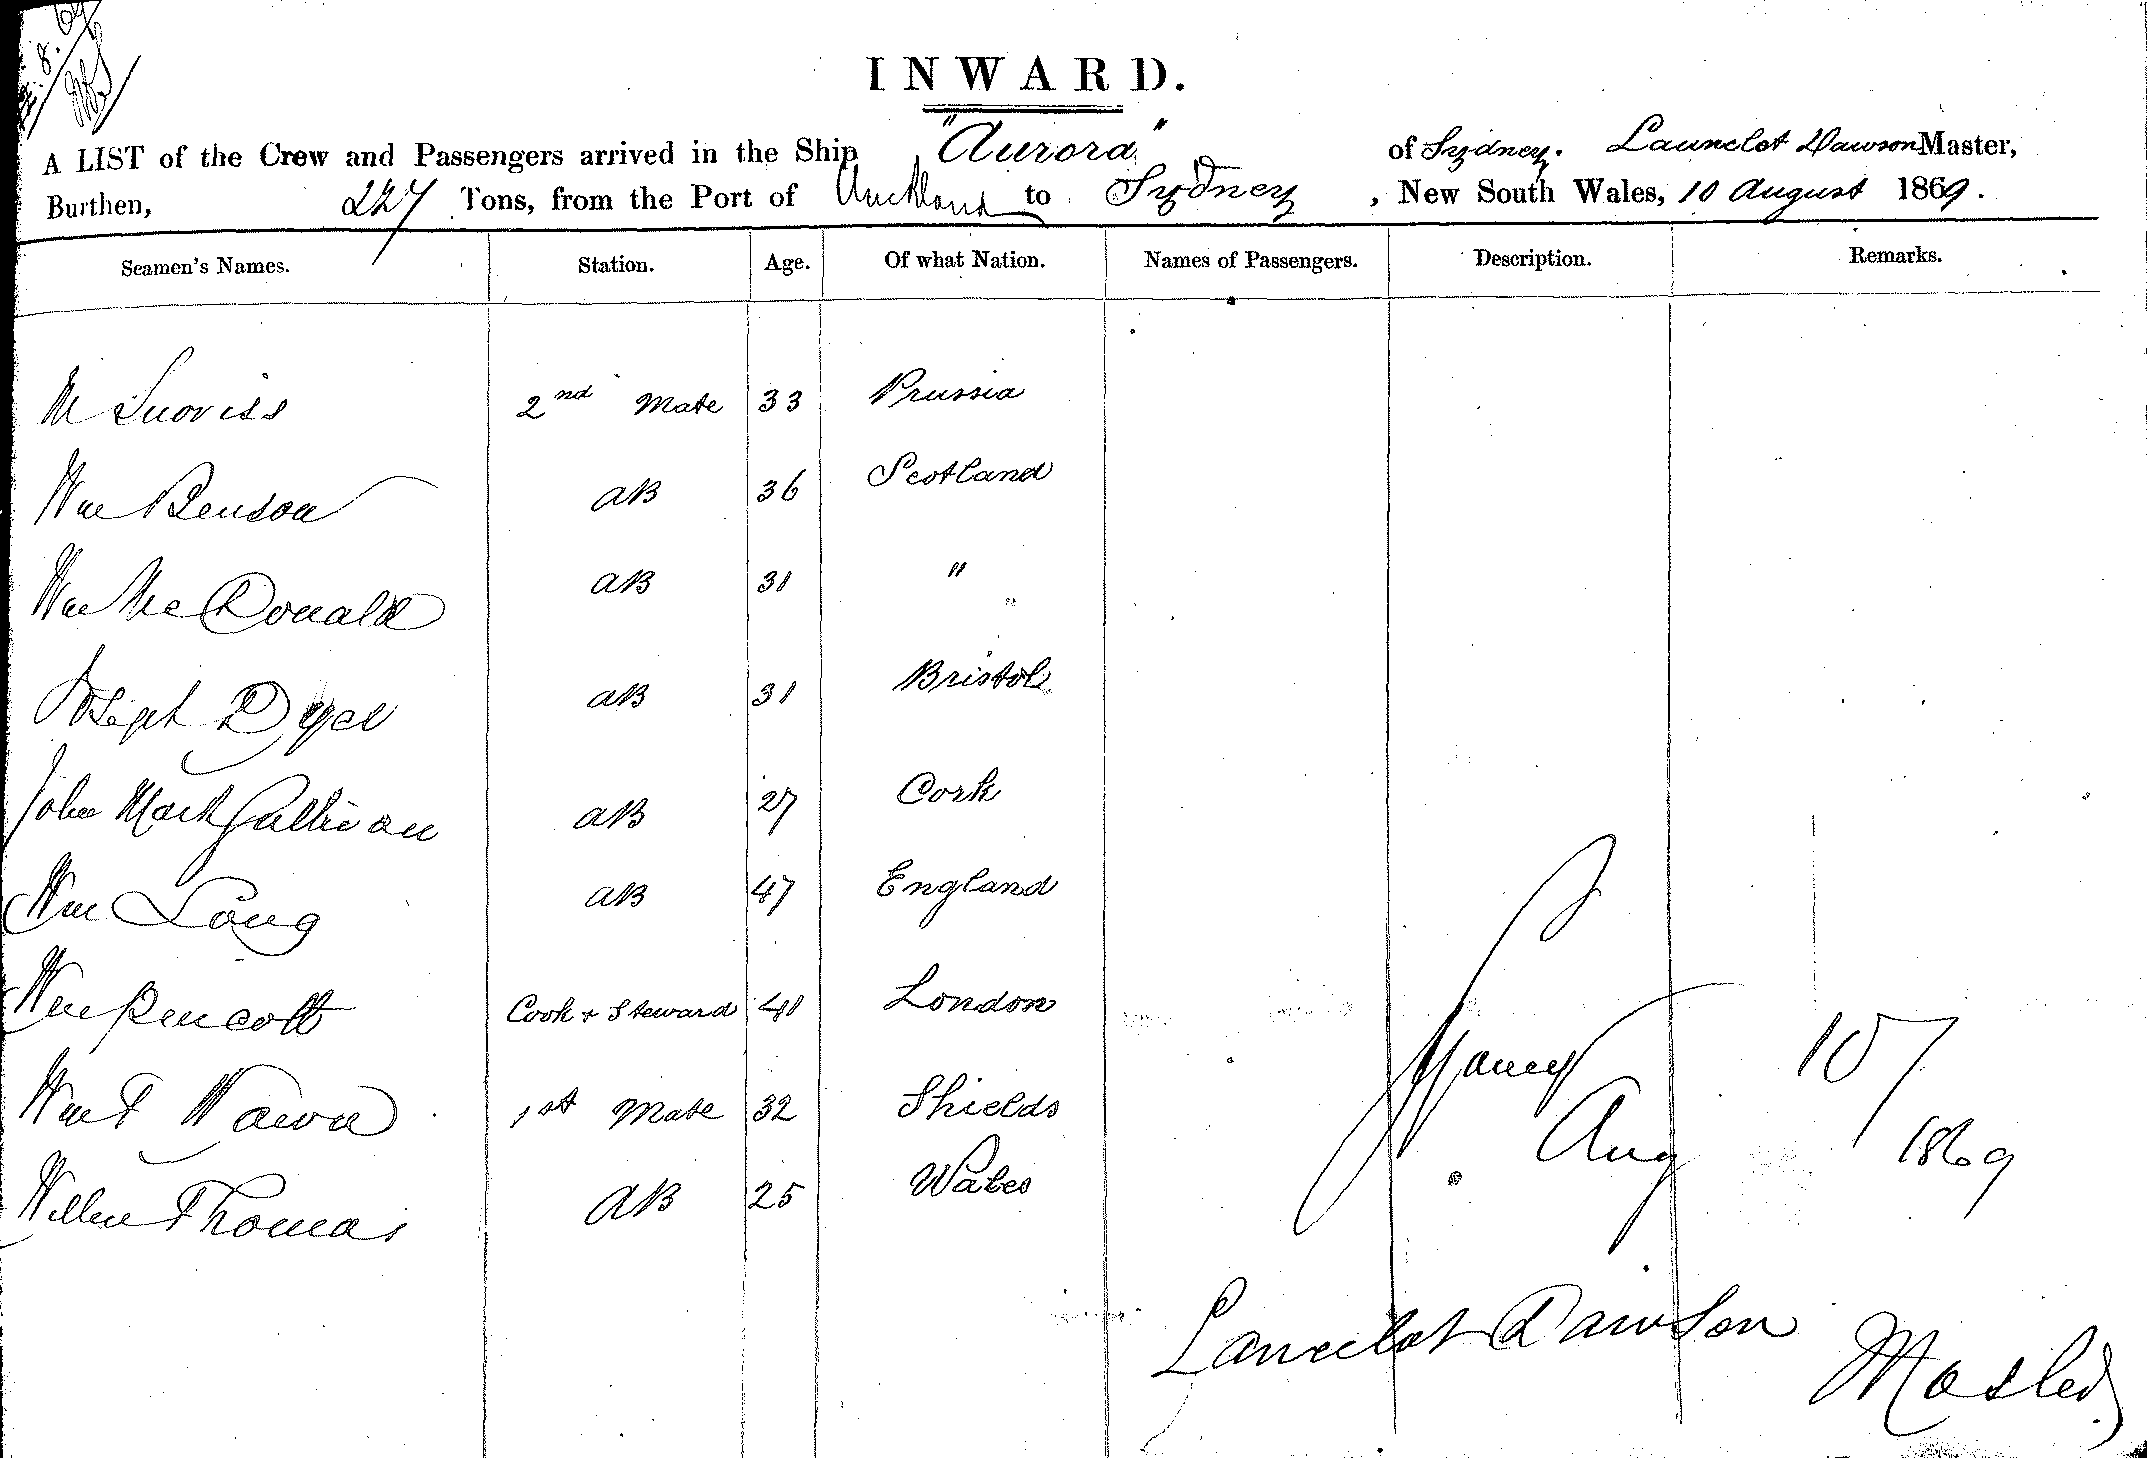 INWARD.
A LIST of the Crew and Passengers arrived in the Ship "Aurora" of Sydney. Launcelot Dawson Master,
Burthen, 227 Tons, from the Port of Auckland to Sydney, New South Wales, 10 August 1869.
Seamen's Names. Station. Age. Of what Nation. Names of Passengers. Description. Remarks.
2nd Mate 33 Prussia
Wm Benson AB 36 Scotland
Wm McDonald AB 31 "
Joseph Dyer AB 31 Bristol
John Mark Sullivan AB 27 Cork
Wm Long AB 47 England
Wm Pencott Cook + Steward 41 London
Wm T Wawn 1st Mate 32 Shields
Willm Thomas AB 25 Wales
10
Aug 1869
Lancelot Dawson
Master